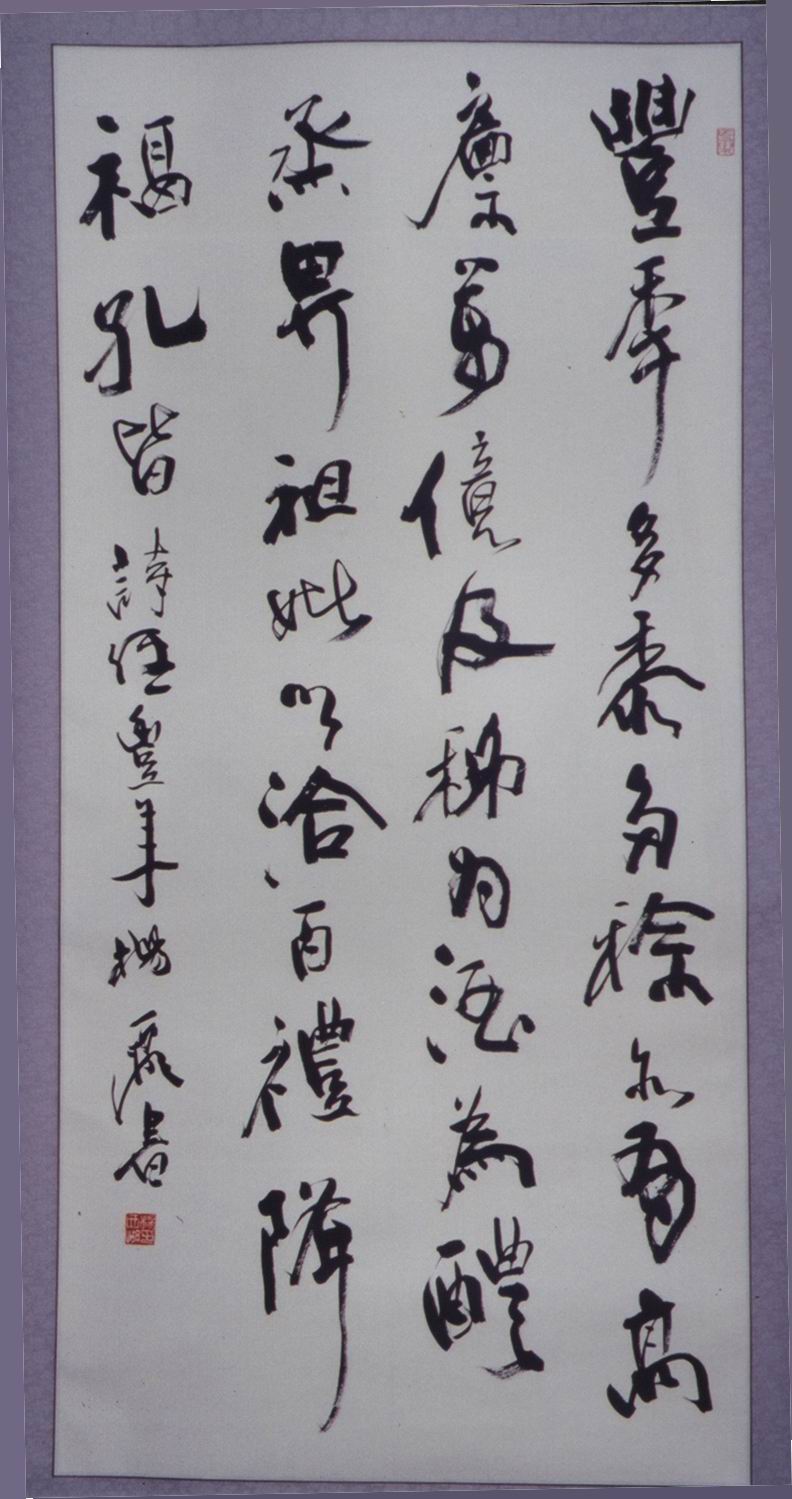 豐年多黍多稌亦有高
廩萬億及秭為酒為醴
烝畀祖妣以洽百禮降
福孔皆 詩經豐年 楊 書